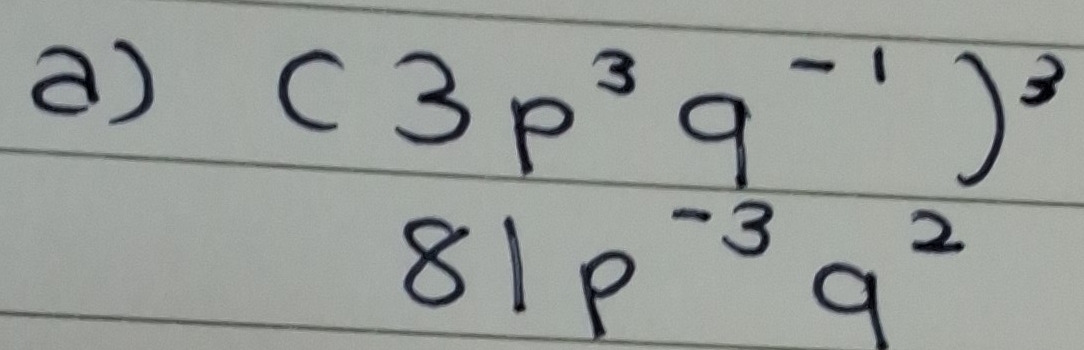 a) (3p³q⁻¹)³
81p⁻³q²